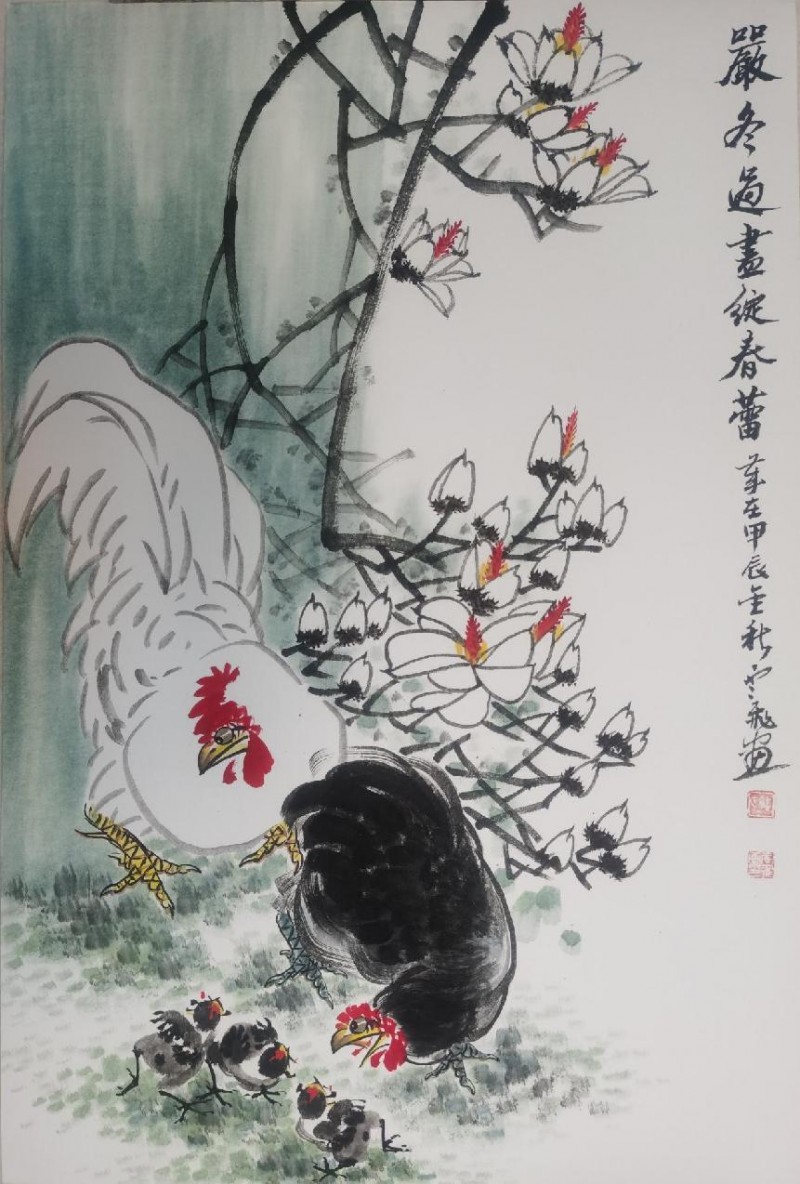 嚴冬過盡綻春蕾
歲在甲辰金秋雲飛畫